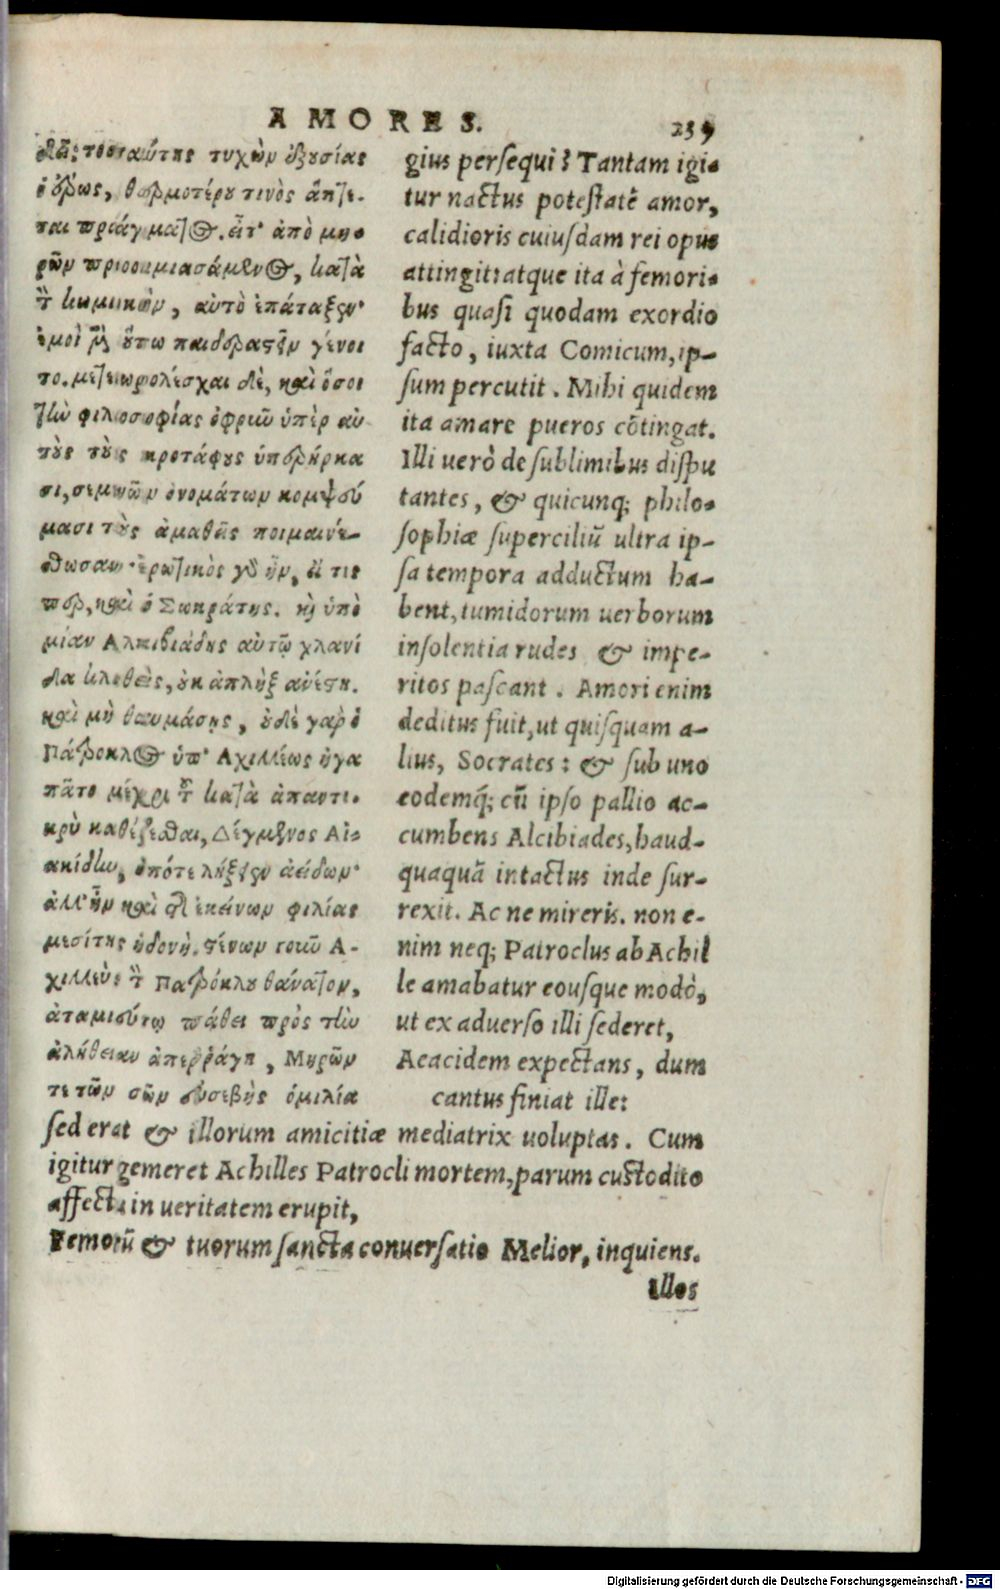 AMORES.
239
δεῖ; τοσαύτης τυχὼν ἐξουσίας
ὁ ἔρως, θερμοτέρου τινὸς ἅπτε-
ται πράγματος. εἶτ' ἀπὸ μη-
ρῶν προοιμιασάμενος, κατὰ
τ̀ κωμικὸν, αὐτὸ ἐπάταξεν·
ἐμοὶ μὲν οὕτω παιδεραστεῖν γένοι
το. μετεωρολέσχαι δὲ, καὶ ὅσοι
τὴν φιλοσοφίας ὀφρῦν ὑπὲρ αὐ
τοὺς τοὺς κροτάφους ὑπερήρκα
σι, σεμνῶν ὀνομάτων κομψεύ
μασι τοὺς ἀμαθεῖς ποιμαινέ-
σθωσαν· ἐρωτικὸς γὰρ ἦν, εἴ τις
περ, καὶ ὁ Σωκράτης. καὶ ὑπὸ
μίαν Αλκιβιάδης αὐτῷ χλανί
δα κλιθεὶς, οὐκ ἀπλὴξ ἀνέστη.
καὶ μὴ θαυμάσῃς, οὐδὲ γὰρ ὁ
Πάτροκλος ὑπ' Αχιλλέως ἠγα
πᾶτο μέχρι τοῦ κατὰ ἀπαντι-
κρὺ καθέζεσθαι, Δέγμενος Αἰ-
ακίδην, ὁπότε λήξειεν ἀείδων·
ἀλλ' ἦν καὶ τῆς ἐκείνων φιλίας
μεσίτης ἡδονή. στένων γοῦν Α-
χιλλεὺς τ̀ Πατρόκλου θάνατον,
ἀταμιεύτῳ πάθει πρὸς τὴν
ἀλήθειαν ἀπερράγη, Μηρῶν
τε τῶν σῶν εὐσεβὴς ὁμιλία
gius persequi? Tantam igi-
tur nactus potestatē amor,
calidioris cuiusdam rei opus
attingit: atque ita à femori-
bus quasi quodam exordio
facto, iuxta Comicum, ip-
sum percutit. Mihi quidem
ita amare pueros cōtingat.
Illi uerò de sublimibus dispu
tantes, & quicunq; philo-
sophiæ superciliū ultra ip-
sa tempora adductum ha-
bent, tumidorum uerborum
insolentia rudes & impe-
ritos pascant. Amori enim
deditus fuit, ut quisquam a-
lius, Socrates: & sub uno
eodemq́; cū ipso pallio ac-
cumbens Alcibiades, haud-
quaquā intactus inde sur-
rexit. Ac ne mireris. non e-
nim neq; Patroclus ab Achil
le amabatur eousque modò,
ut ex aduerso illi sederet,
Aeacidem expectans, dum
cantus finiat ille:
sed erat & illorum amicitiæ mediatrix uoluptas. Cum
igitur gemeret Achilles Patrocli mortem, parum custodito
affectu in ueritatem erupit,
Femorū & tuorum sancta conuersatio Melior, inquiens.
illos
Digitalisierung gefördert durch die Deutsche Forschungsgemeinschaft - DFG